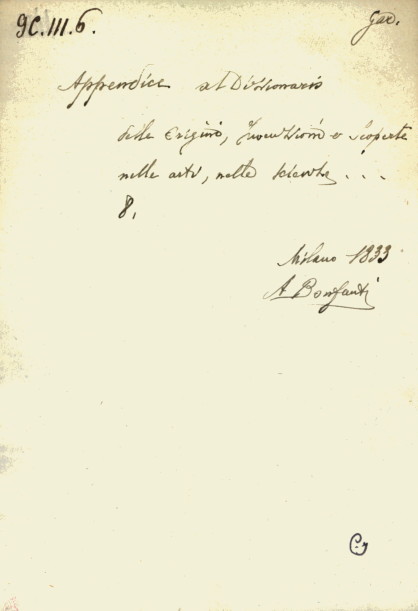 9C.III.6.
Appendice al Dizionario
delle Origini, Invenzioni e Scoperte
nelle arti, nelle Scienze . . .
8.
Milano 1833
A Bonfanti